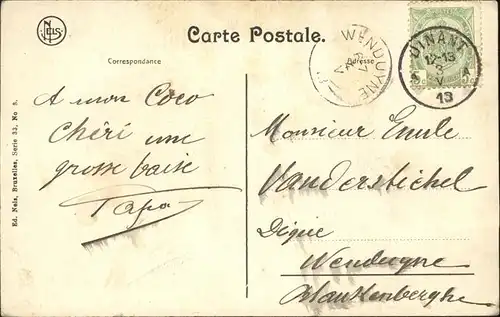 NELS
Carte Postale.
Correspondance
Adresse
WENDUYNE
DINANT
12-13
13
Ed. Nels, Bruxelles, Serie 33, No 8.
A mon Coco
Chéri une
grosse baise
Papa
Monsieur Emile
Vanderstichel
Digue
Wenduyne
Blankenberghe